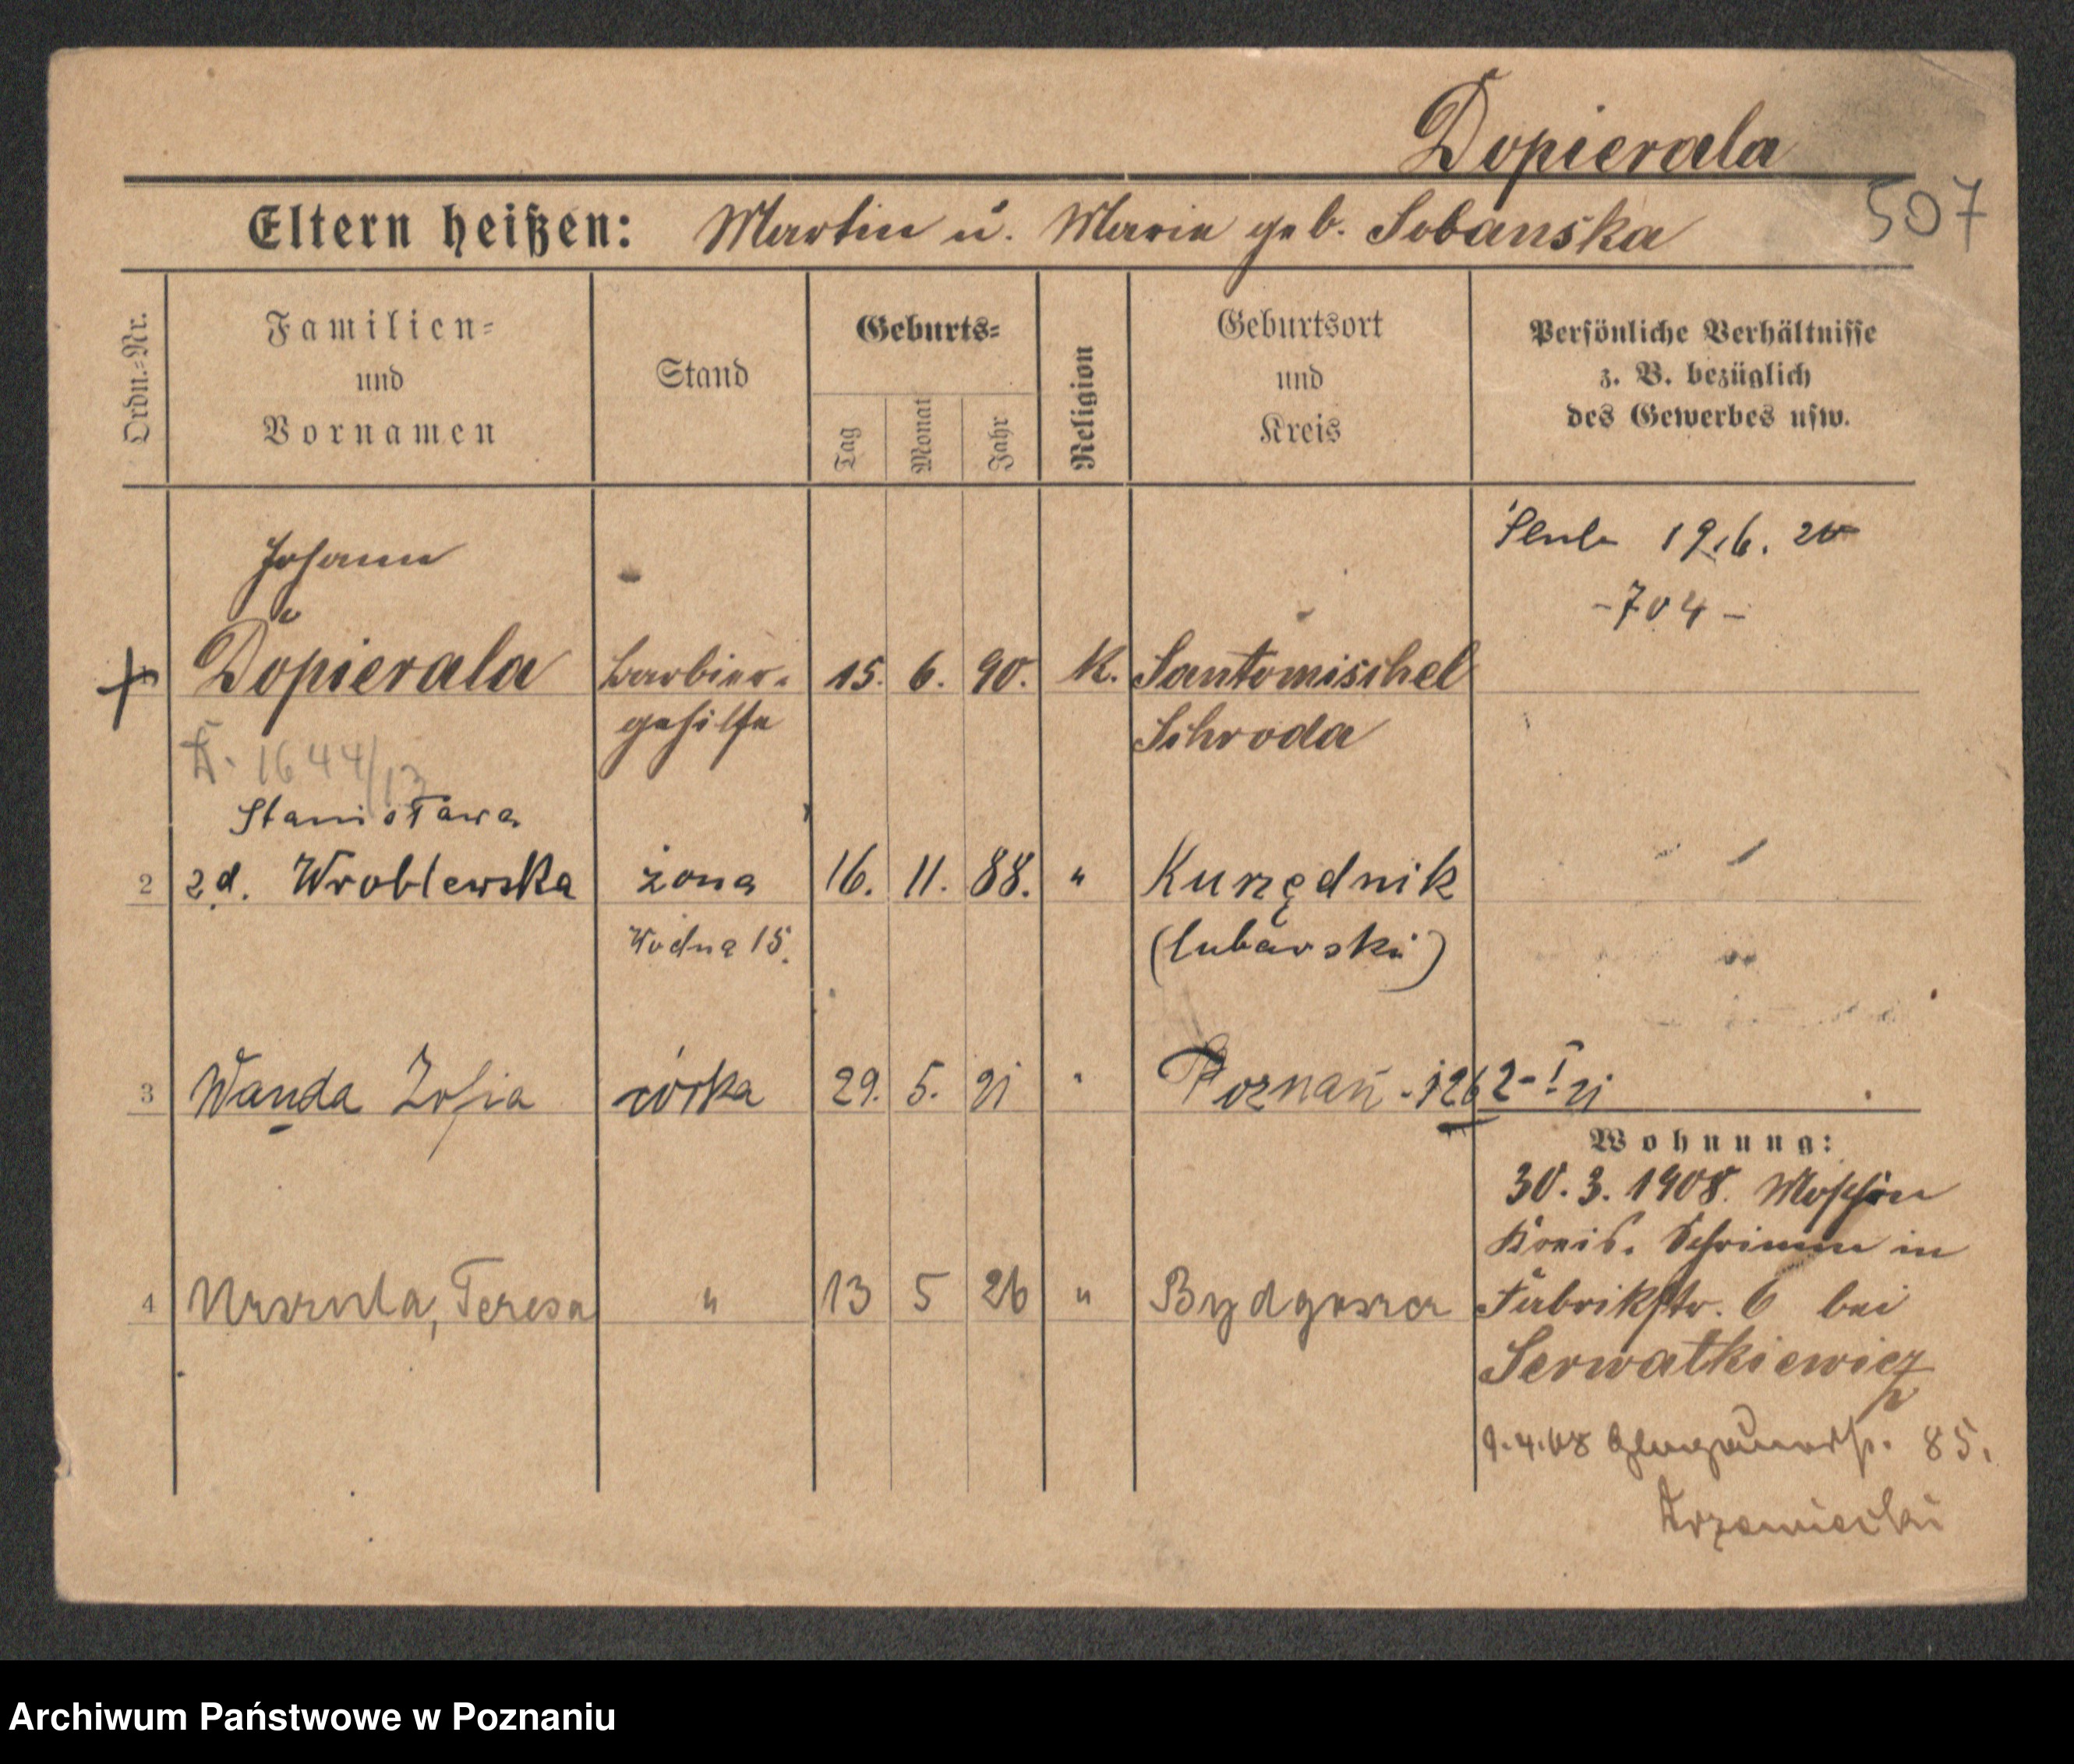 Dopierala
507
Eltern heißen: Martin u. Maria geb. Sobanska
Ordn.-Nr.
Familien-
und
Vornamen
Stand
Geburts-
Tag
Monat
Jahr
Religion
Geburtsort
und
Kreis
Persönliche Verhältnisse
z. B. bezüglich
des Gewerbes usw.
19.6. 20
-704-
Johann
Dopierala Barbier- 15. 6. 90. K. Santomischel
gehilfe Schroda
1644/13
Stanisława
2 z d. Wroblewska żona 16. 11. 88. " Kurzędnik
Wodna 15. (lubawski)
3 Wanda Zofia córka 29. 5. 21 " Poznań - 1262-I 21
Wohnung:
30. 3. 1908. Moschin
Kreis. Schrimm in
4 Urszula, Teresa " 13 5 26 " Bydgoszcz
Fabrikstr. 6 bei
Serwatkiewicz
9.4.08 Glogauerstr. 85.
Archiwum Państwowe w Poznaniu